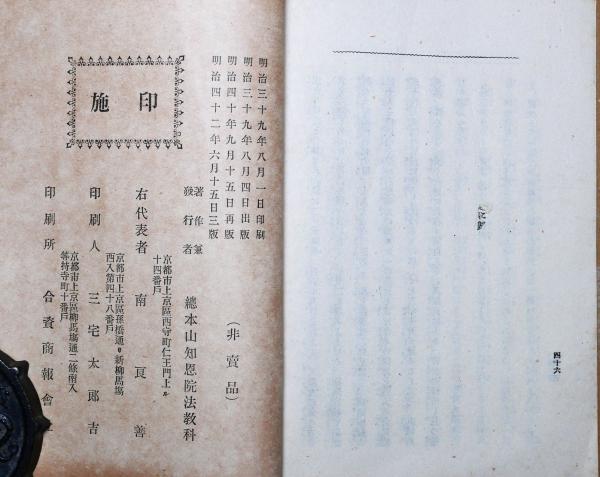 四十六
明治三十九年八月一日印刷
明治三十九年八月四日出版
明治四十年九月十五日再版
明治四十二年六月十五日三版
(非賣品)
著作兼
發行者
總本山知恩院法教科
京都市上京區西寺町仁王門上ル
十四番戸
右代表者 南良善
京都市上京區孫橋通リ新柳馬塲
西入第四十八番戸
印刷人 三宅太郎吉
京都市上京區柳馬塲通二條南入
等持寺町十番戸
印刷所 合資商報會
施印